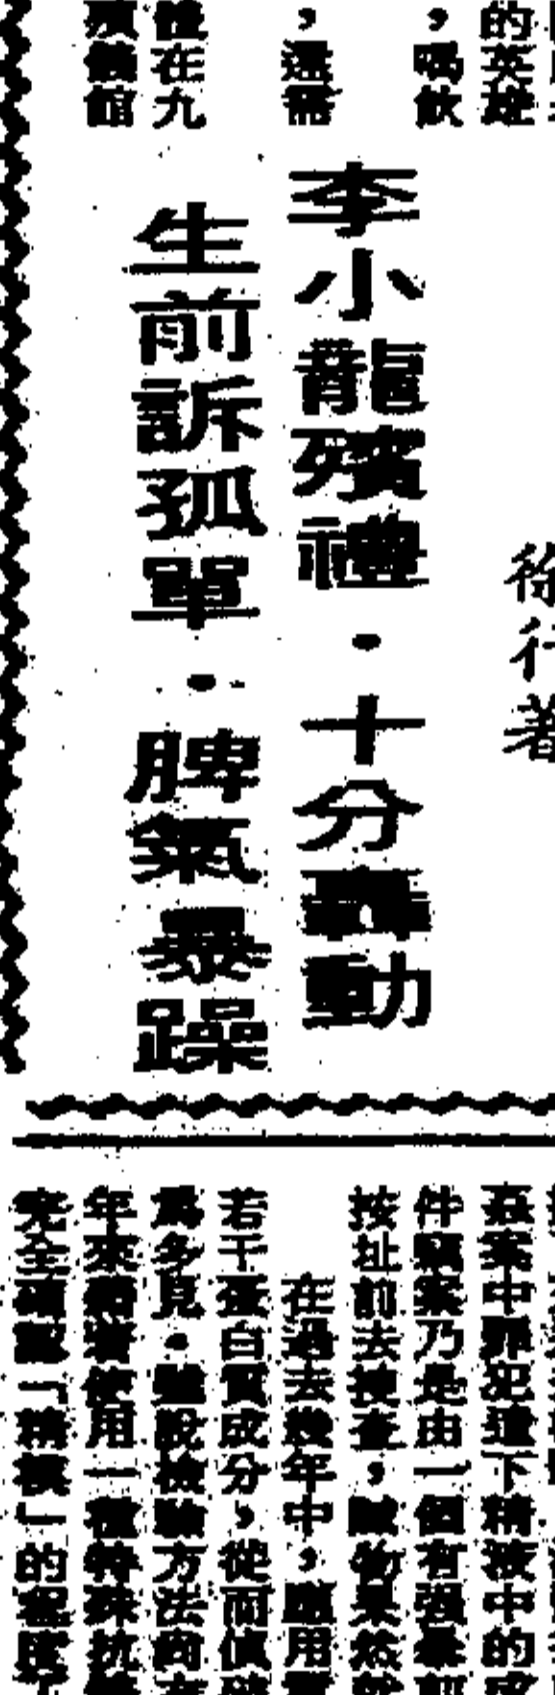 的英雄
，喝飲
，還需
體在九
殯儀館
徐行著
李小龍殯禮．十分轟動
生前訴孤單．脾氣暴躁
姦案中罪犯遺下精液中的成
件竊案乃是由一個有強暴前
按址前去搜查，贓物果然就
在過去幾年中，應用
若干蛋白質成分，從而偵破
為多見。雖說檢驗方法尚在
年來藉著使用一種特殊抗
完全確認「精模」的程度